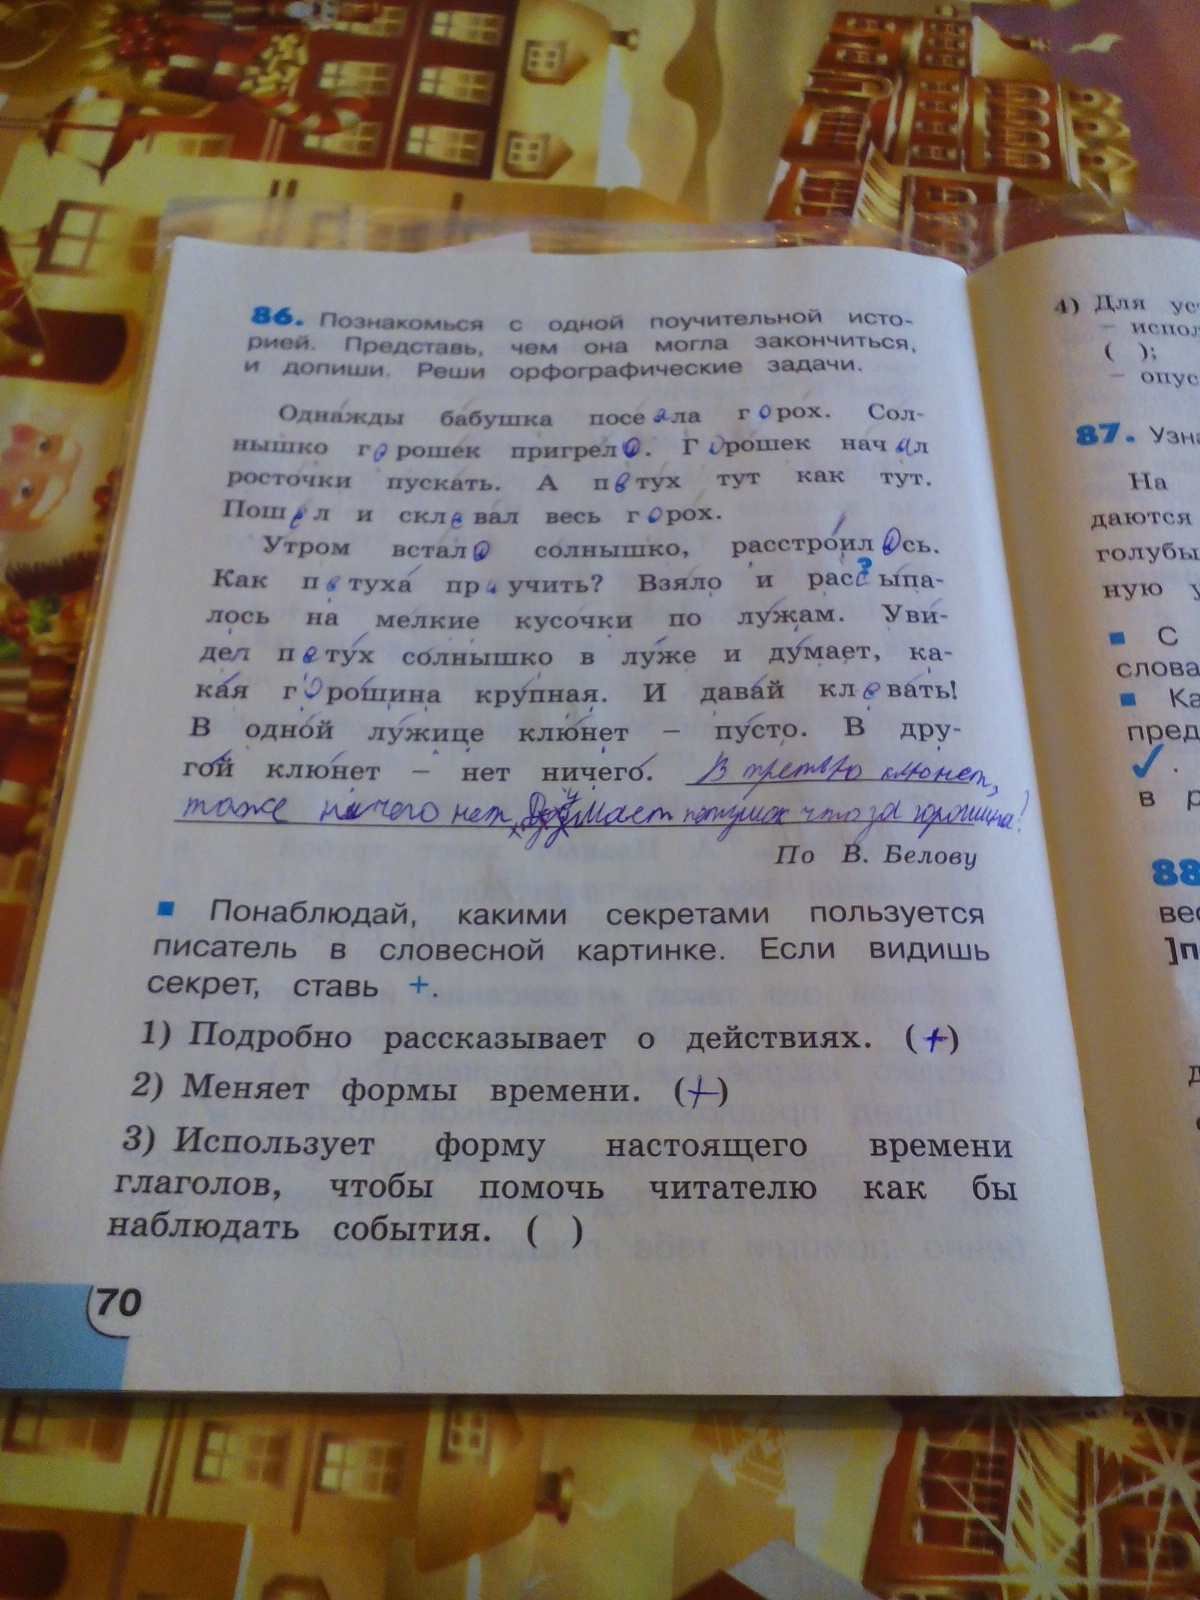 86. Познакомься с одной поучительной исто-
рией. Представь, чем она могла закончиться,
и допиши. Реши орфографические задачи.
Однажды бабушка посеяла горох. Сол-
нышко горошек пригрело. Горошек начал
росточки пускать. А петух тут как тут.
Пошел и склевал весь горох.
Утром встало солнышко, расстроилось.
Как петуха проучить? Взяло и рассыпа-
лось на мелкие кусочки по лужам. Уви-
дел петух солнышко в луже и думает, ка-
кая горошина крупная. И давай клевать!
В одной лужице клюнет – пусто. В дру-
гой клюнет – нет ничего. В третью клюнет,
тоже ничего нет. Думает петушок что за горошина!
По В. Белову
Понаблюдай, какими секретами пользуется
писатель в словесной картинке. Если видишь
секрет, ставь +.
1) Подробно рассказывает о действиях. (+)
2) Меняет формы времени. (+)
3) Использует форму настоящего времени
глаголов, чтобы помочь читателю как бы
наблюдать события. ( )
70
4) Для
–
( );
–
87.
На
даются
голубы
ную
С
слова
Ка
пред
в р
88
вес
]п